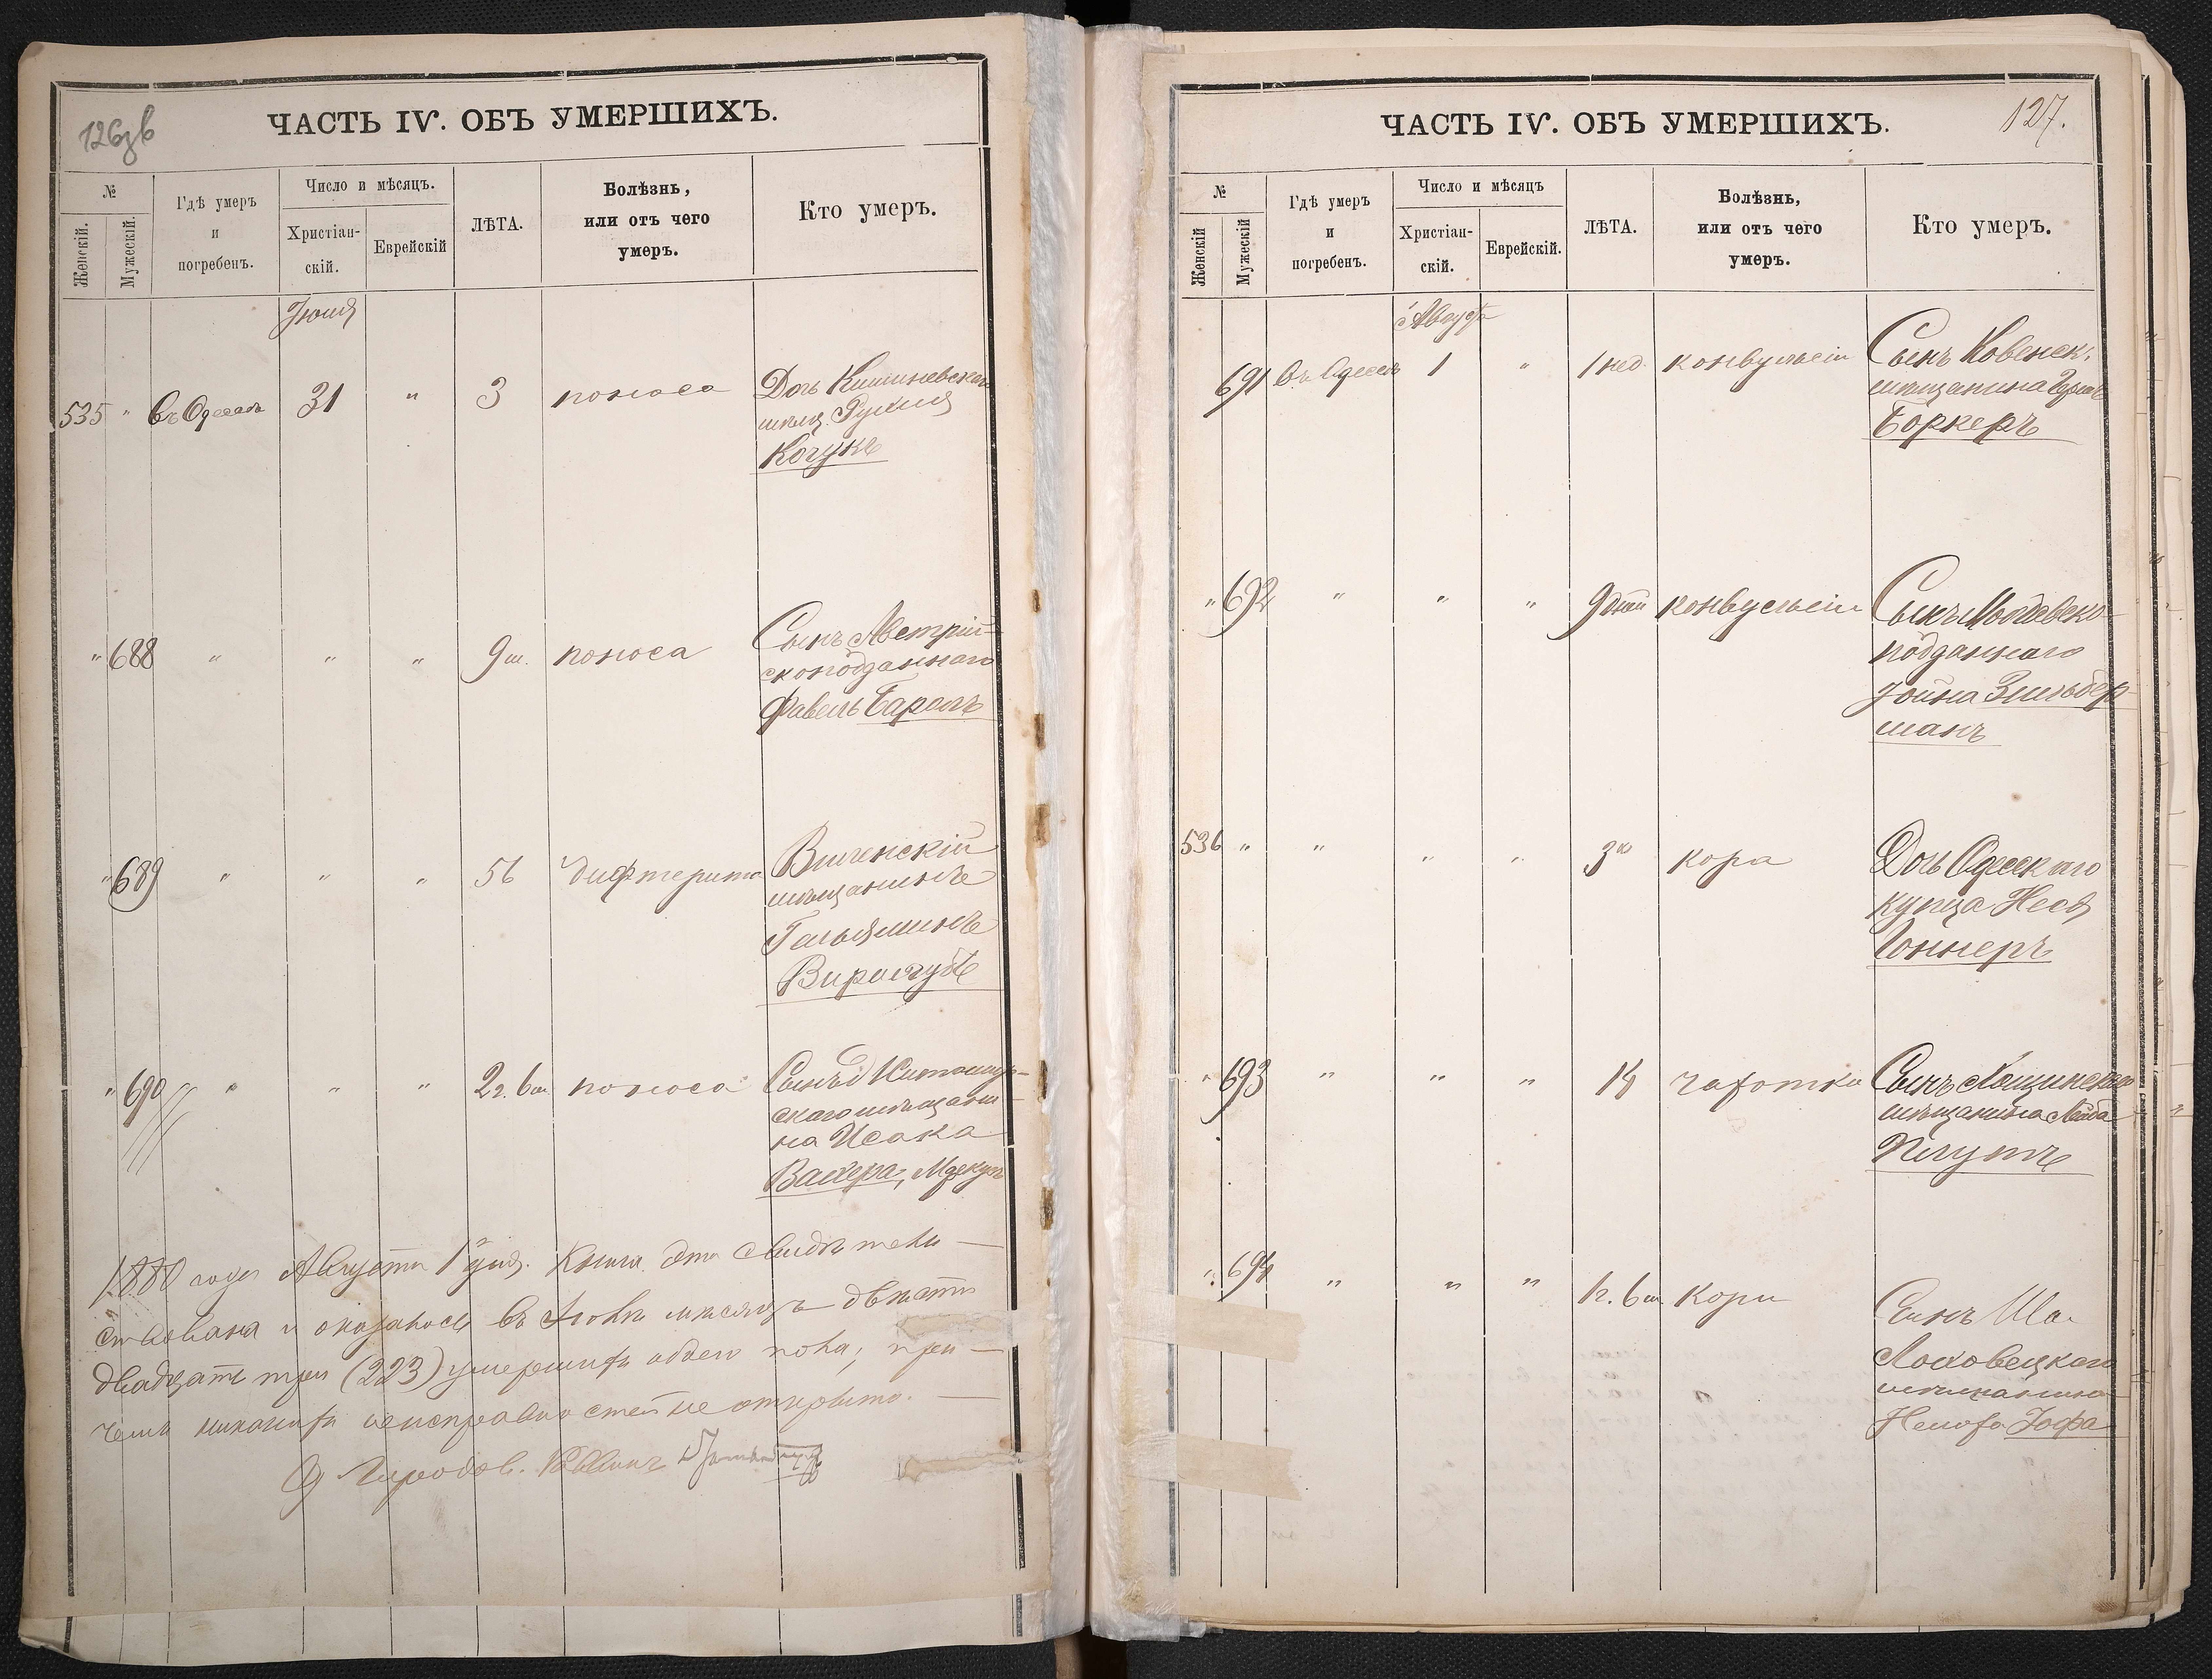 126зв
ЧАСТЬ IV. ОБЪ УМЕРШИХЪ.
№
Женскій.
Мужескій.
Гдѣ умеръ
и
погребенъ.
Число и мѣсяцъ.
Христіан-
скій.
Еврейскій
ЛѢТА.
Болѣзнь,
или отъ чего
умеръ.
Кто умеръ.
Іюля
535 " въ Одессѣ 31 " 3 поноса Дочь Кишиневскаго
мѣщ.
Кочукъ
" 688 " " " 9 м. поноса Сынъ Австрій-
скоподданнаго
Файвель Бараль
" 689 " " " 56 дифтерита Виленскій
мѣщанинъ
Вирогубъ
" 690 " " " 2 г. 6 м. поноса Сынъ Житомир-
скаго мѣщани-
на Исаака
1880 года Августа 1 дня. Книга эта свидѣтель-
ствована и оказалось въ Іюлѣ мѣсяцѣ двѣсти
двадцать три (223) умершихъ обоего пола; при-
чемъ никакихъ неисправностей не открыто.
Городов. Раввинъ
127.
ЧАСТЬ IV. ОБЪ УМЕРШИХЪ.
№
Женскій
Мужескій
Гдѣ умеръ
и
погребенъ.
Число и мѣсяцъ
Христіан-
скій.
Еврейскій.
ЛѢТА.
Болѣзнь,
или отъ чего
умеръ.
Кто умеръ.
Августа
691 въ Одессѣ 1 " 1 нед. конвульсіи Сынъ Ковенск.
мѣщанина
Боркеръ
" 692 " " " 9 дней конвульсіи Сынъ
подданнаго
Іойна Зильбер-
манъ
536 " " " " 3 кора Дочь Одесскаго
купца
" 693 " " " 14 чахотки Сынъ
мѣщанина Лейба
Плутъ
" 694 " " " 1 г. 6 м. кори Сынъ Ша-
мѣщанина
Іофа